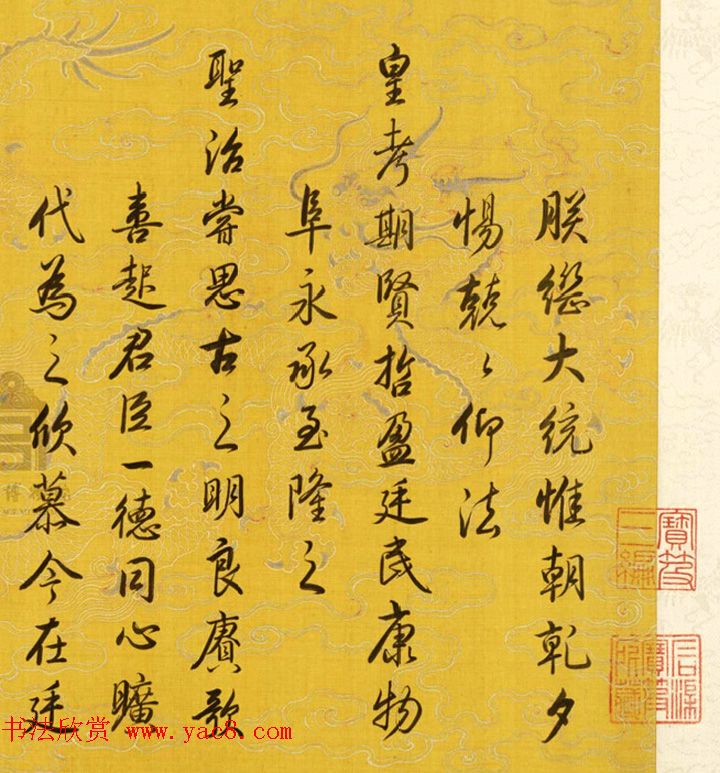 朕缵大統惟朝乾夕
惕兢〻仰法
皇考期賢哲盈廷民康物
阜永承至隆之
聖治嘗思古之明良賡歌
喜起君臣一德同心曠
代為之欣慕今在廷
寶笈
三編
石渠
寶笈
所藏
博
书法欣赏 www.yac8.com